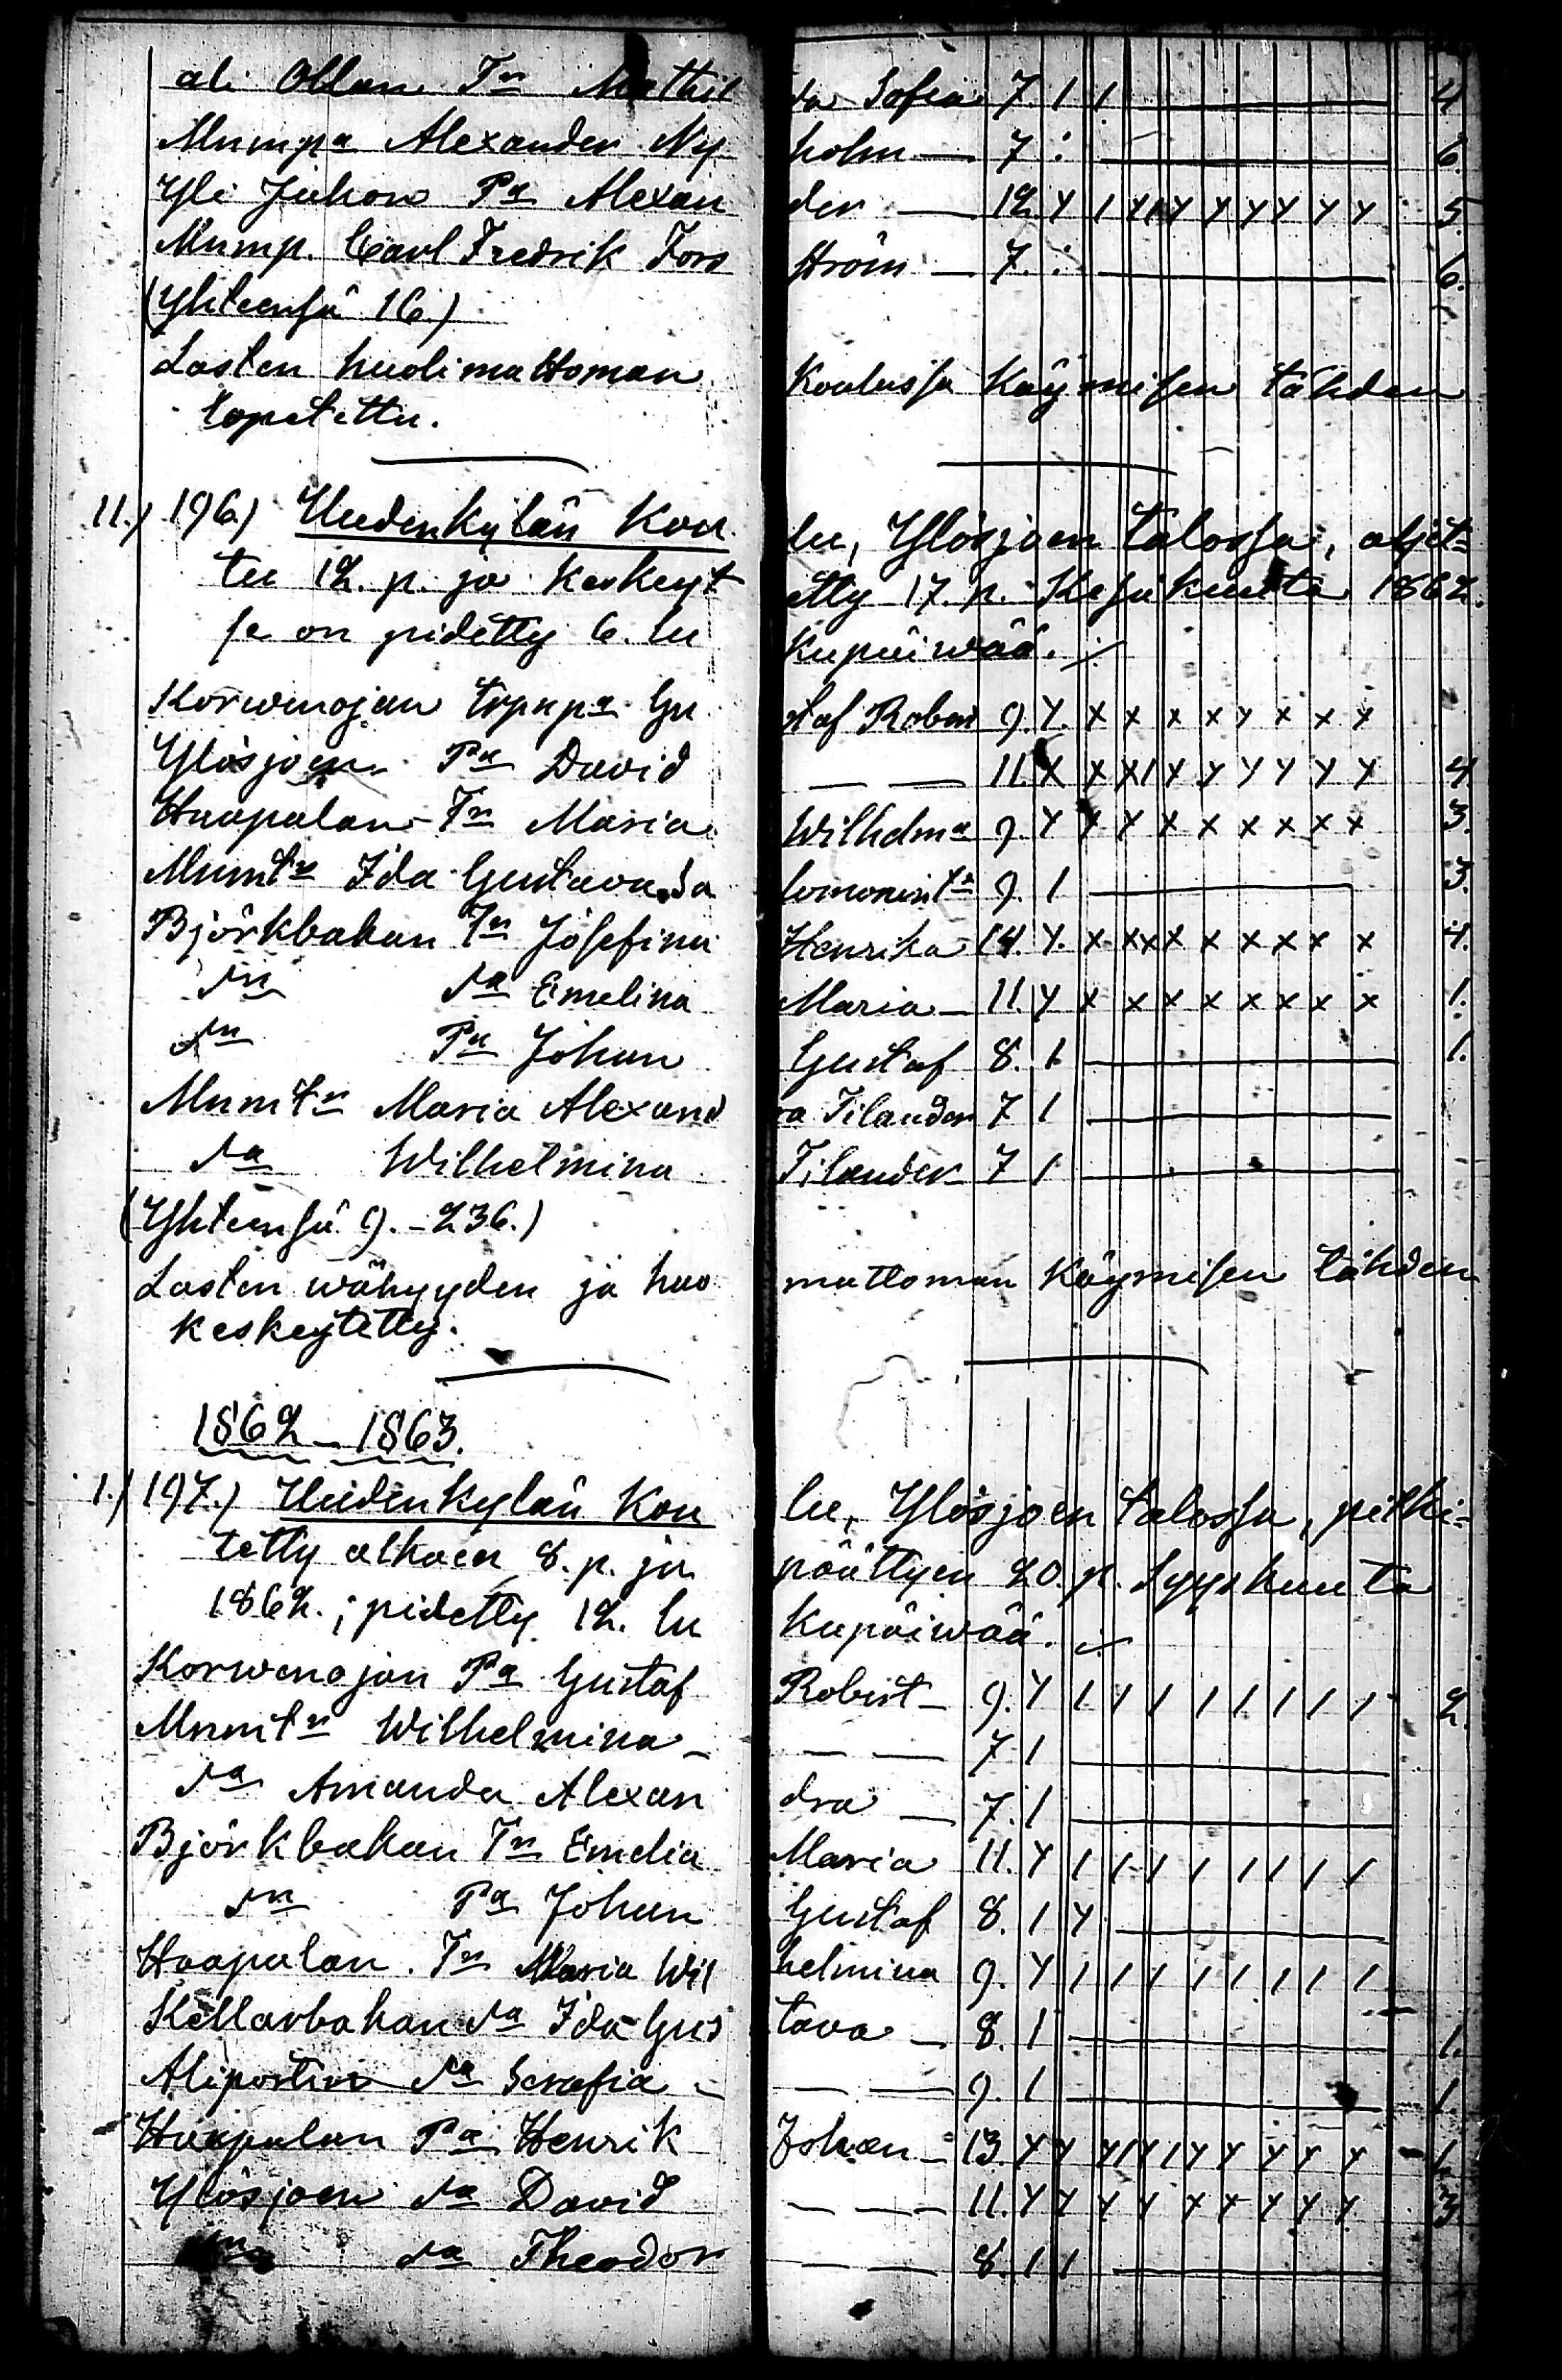 ali Ollan Tr Mathil da Sofia 7. 1 1 4
Mumpa Alexander Ny holm 7 : 6.
Yli Juhon Pa Alexan der 12. Y 1 Y 1 Y Y Y Y Y Y 5.
Mump. Carl Fredrik Fors ström 7. : 6.
(Yhteensä 16.)
Lasten huolimattoman Koulussa Käymisen tähden
lopetettu.
11.) 196.) Uudenkylän Kou lu, Ylösjoen talossa, aljet=
tu 12. p. ja Keskeyt etty 17. p. Kesäkuuta 1862.
se on pidetty 6. lu kupäiwää. ./.
Korwenojan trpnpa Gu staf Robert 9. Y. x x x x y x x x
Ylösjoen Pa David — — 11. X x x 1 x y y y y y 4
Haapalan Tr Maria Wilhelma 9. Y Y Y x x x x x x 3.
Mumtr Ida Gustava Sa lomonint 9. 1 3.
Björkbakan Tr Josefina Henrika 14. Y. x x x x x x x x x 4.
sn sa Emelina Maria 11. Y x x x x x x x x 1.
sn Pa Johan Gustaf 8. 1 1.
Mumtr Maria Alexand ra Tilander 7 1
sa Wilhelmina Tilander 7 1
(Yhteensä 9. - 236.)
Lasten wähyyden ja huo mattoman Käymisen tähden
Keskeytetty.
1862 - 1863.
1.) 197.) Uudenkylän Kou lu, Ylösjoen talossa, pitki=
tetty alkaen 8. p. ja päättyen 20. p. Syyskuuta
1862. ; pidetty 12. lu kupäiwää. ./.
Korwenojan Pa Gustaf Robert 9. Y 1 Y 1 1 1 1 1 1 2.
Mumtr Wilhelmina — — 7 1
sa Amanda Alexan dra — 7. 1
Björkbakan Tr Emelia Maria 11. Y 1 1 1 1 1 1 1 1
sn Pa Johan Gustaf 8. 1 Y
Haapalan Tr Maria Wil helmina 9. Y 1 1 1 1 1 1 1 1
Kellarbakan sa Ida Gus tava 8. 1 1.
Aliportin sa Serafia — — 9. 1 1.
Haapalan Pa Henrik Johan 13. Y Y Y 1 Y 1 Y Y Y Y Y 1.
Ylösjoen sa David — — 11. Y Y Y Y Y Y Y Y Y 3.
sn sa Theodor — — 8. 1 1